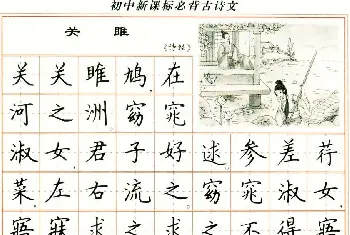 初中新课标必背古诗文
关雎
《诗经》
关关雎鸠在
河之洲窈窕
淑女君子好逑参差荇
菜左右流之窈窕淑女
寤寐求之求之不得寤